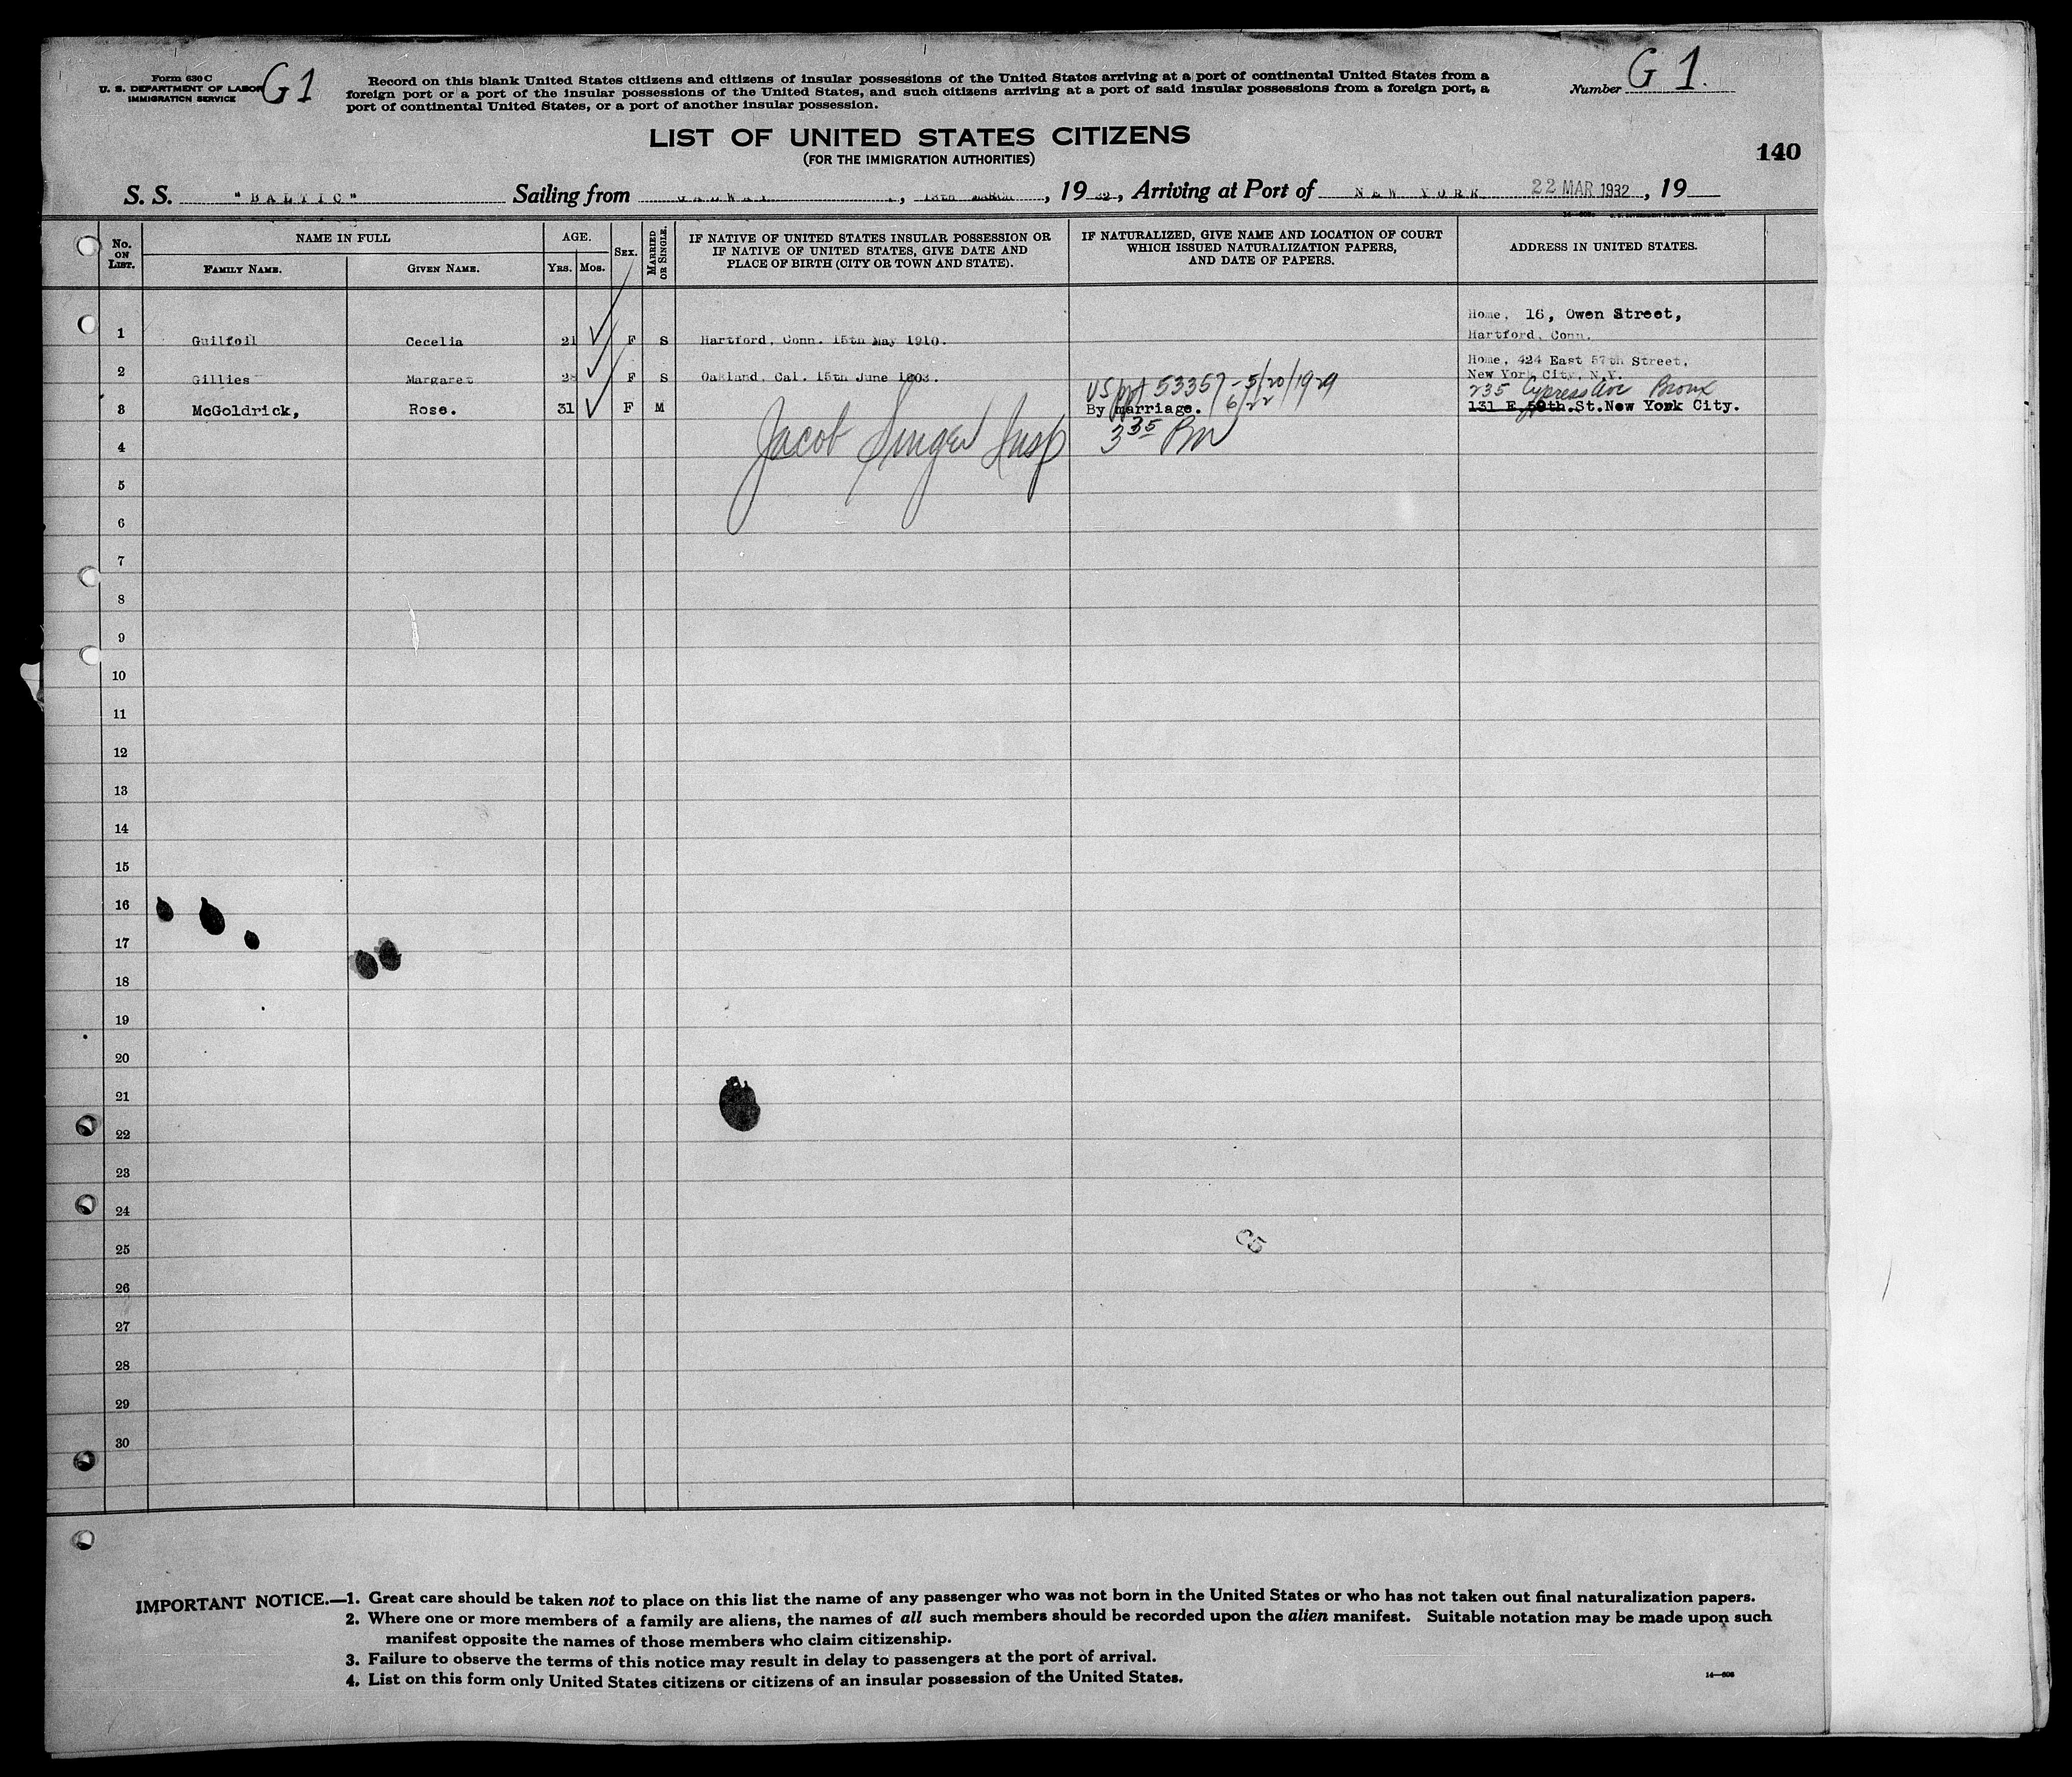 Form 630 C
U. S. DEPARTMENT OF LABOR
IMMIGRATION SERVICE
G1
Record on this blank United States citizens and citizens of insular possessions of the United States arriving at a port of continental United States from a
foreign port or a port of the insular possessions of the United States, and such citizens arriving at a port of said insular possessions from a foreign port, a
port of continental United States, or a port of another insular possession.
Number G 1.
LIST OF UNITED STATES CITIZENS
(FOR THE IMMIGRATION AUTHORITIES)
140
S. S. "BALTIC" Sailing from GALWAY, 13th MARCH, 1932, Arriving at Port of NEW YORK 22 MAR 1932, 19
No. ON LIST.
NAME IN FULL
FAMILY NAME.
GIVEN NAME.
AGE.
YRS. MOS.
SEX.
MARRIED OR SINGLE.
IF NATIVE OF UNITED STATES INSULAR POSSESSION OR
IF NATIVE OF UNITED STATES, GIVE DATE AND
PLACE OF BIRTH (CITY OR TOWN AND STATE).
IF NATURALIZED, GIVE NAME AND LOCATION OF COURT
WHICH ISSUED NATURALIZATION PAPERS,
AND DATE OF PAPERS.
ADDRESS IN UNITED STATES.
Home, 16, Owen Street,
1 Guilfoil Cecelia 21 F S Hartford, Conn. 15th May 1910. Hartford, Conn.
Home, 424 East 57th Street,
2 Gillies Margaret 28 F S Oakland, Cal. 15th June 1903. New York City, N.Y.
US ppt 53357 - 5/20/1929 235 Cypress Ave Bronx
3 McGoldrick, Rose. 31 F M By marriage. 6/22 131 E. 59th.St.New York City.
Jacob Singer Insp 3 35
4
5
6
7
8
9
10
11
12
13
14
15
16
17
18
19
20
21
22
23
24
C5
25
26
27
28
29
30
IMPORTANT NOTICE.—1. Great care should be taken not to place on this list the name of any passenger who was not born in the United States or who has not taken out final naturalization papers.
2. Where one or more members of a family are aliens, the names of all such members should be recorded upon the alien manifest. Suitable notation may be made upon such
manifest opposite the names of those members who claim citizenship.
3. Failure to observe the terms of this notice may result in delay to passengers at the port of arrival.
4. List on this form only United States citizens or citizens of an insular possession of the United States.